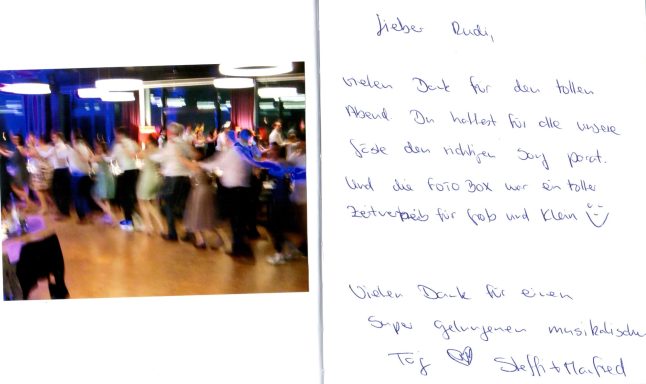 Lieber Rudi,
vielen Dank für den tollen
Abend. Du hattest für alle unsere
Gäste den richtigen Song parat.
Und die FOTO BOX war ein toller
Zeitvertreib für groß und klein
Vielen Dank für einen
super gelungenen musikalischen
Tag Steffi + Manfred